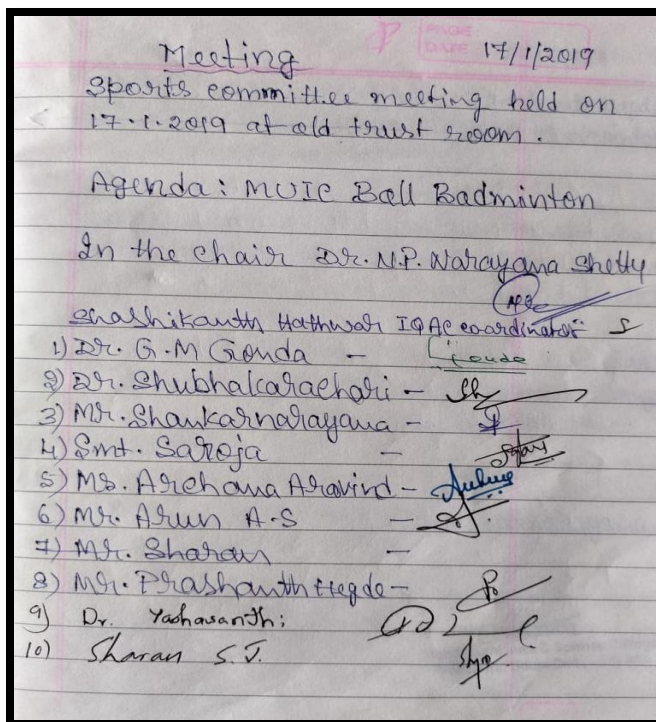 PAGE
DATE 17/1/2019
Meeting
Sports committee meeting held on
17.1.2019 at old trust room.
Agenda: MUIC Ball Badminton
In the chair Dr. N.P. Narayana Shetty
Shashikanth Hathwar IQAC coordinator
1) Dr. G.M Gonda - Gouda
2) Dr. Shubhakarachari -
3) Mr. Shankarnarayana -
4) Smt. Saroja -
5) Ms. Archana Aravind -
6) Mr. Arun A.S -
7) Mr. Sharan -
8) Mr. Prashanth Hegde -
9) Dr. Yashasanthi
10) Sharan S.J.